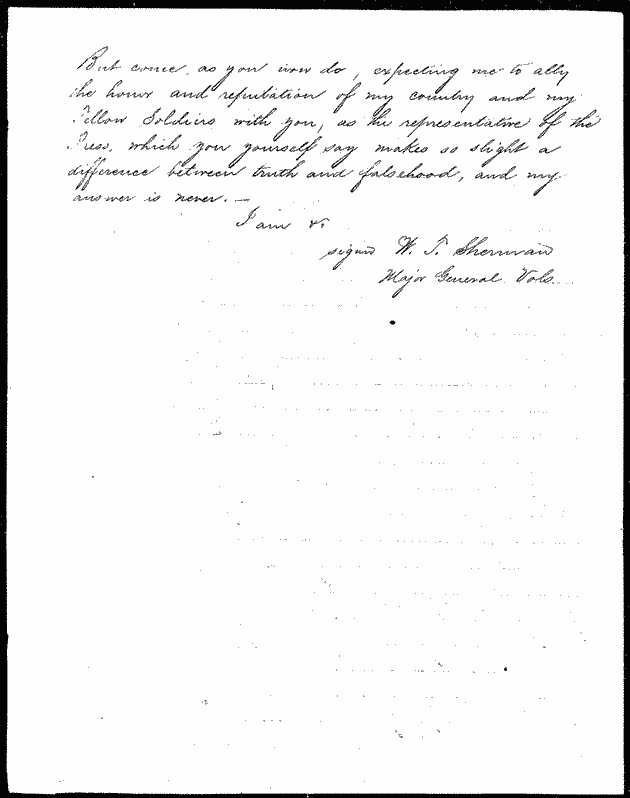 But come, as you now do, expecting me to ally
the honor and reputation of my country and my
Fellow Soldiers with you, as the representative of the
Press, which you yourself say makes so slight a
difference between truth and falsehood, and my
answer is never. —
I am &c
signed W. T. Sherman
Major General Vols.